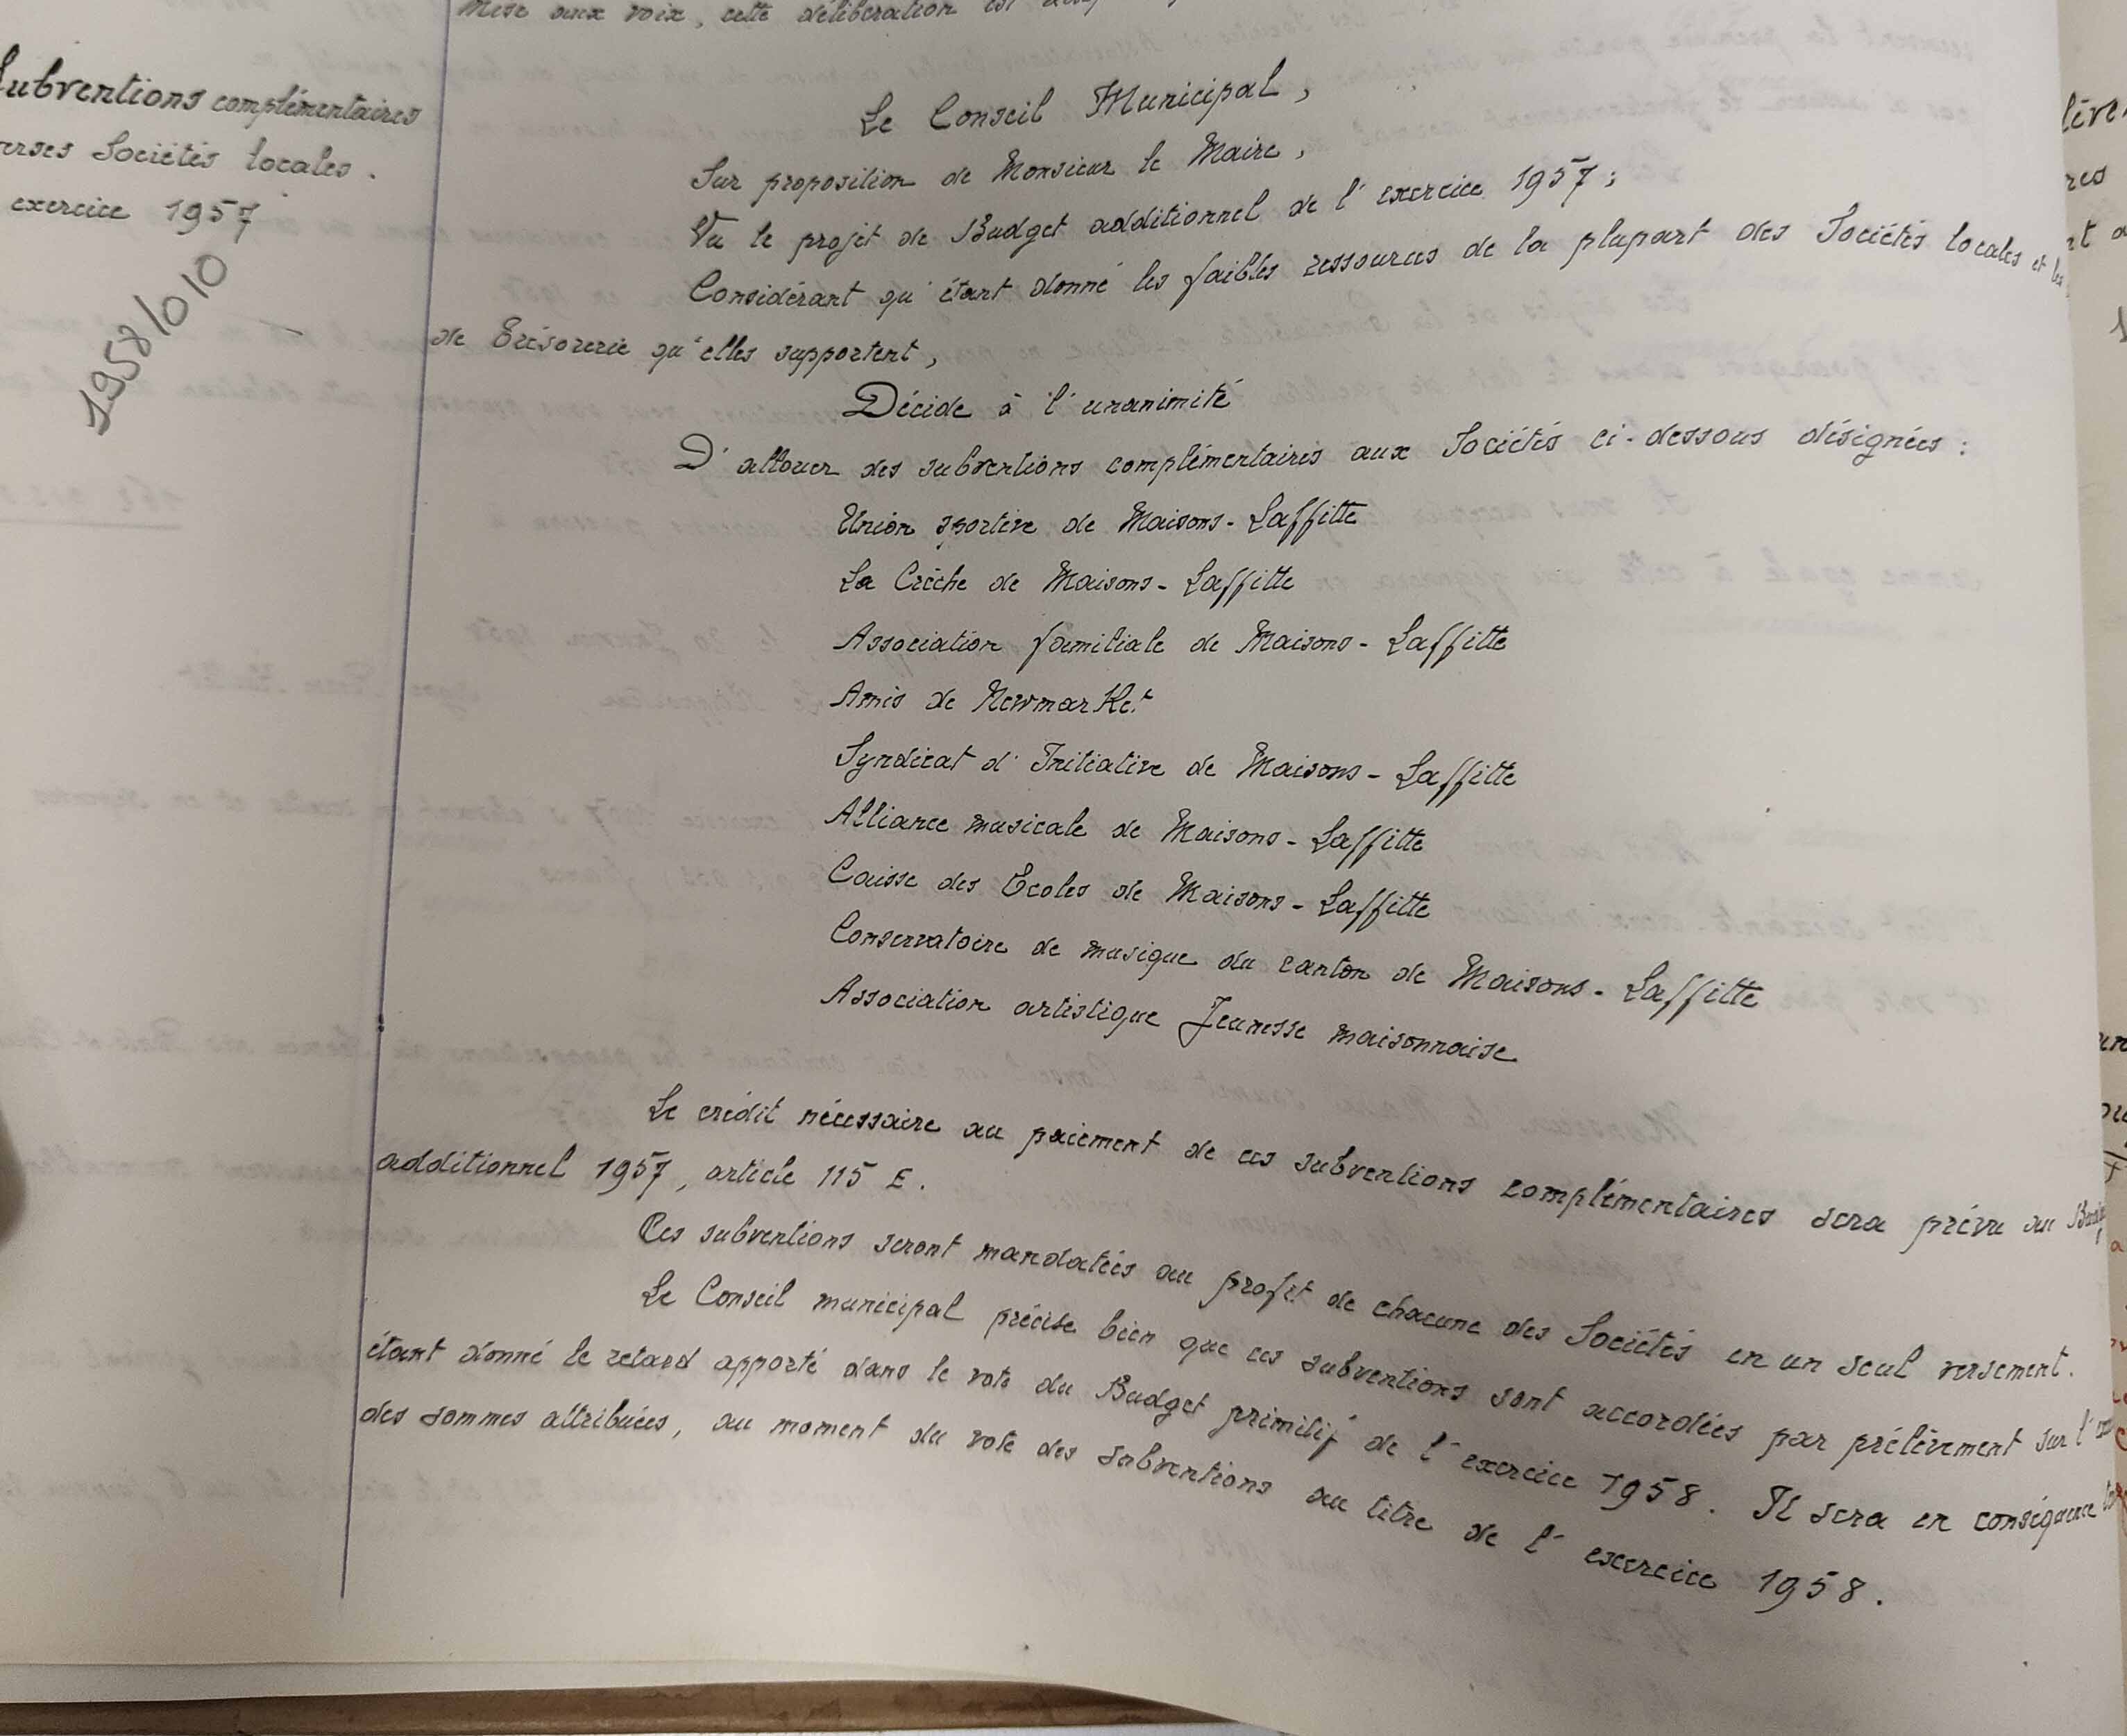 Mise aux voix, cette délibération est
Subventions complémentaires
Sociétés locales.
exercice 1957
1958/010
Le Conseil Municipal,
Sur proposition de Monsieur le Maire,
Vu le projet de Budget additionnel de l'exercice 1957;
Considérant qu'étant donné les faibles ressources de la plupart des Sociétés locales et les
de Trésorerie qu'elles supportent,
Décide à l'unanimité
D'allouer des subventions complémentaires aux Sociétés ci-dessous désignées :
Union sportive de Maisons-Laffitte
La Crèche de Maisons-Laffitte
Association familiale de Maisons-Laffitte
Amis de Newmarket
Syndicat d'Initiative de Maisons-Laffitte
Alliance musicale de Maisons-Laffitte
Caisse des Ecoles de Maisons-Laffitte
Conservatoire de musique du canton de Maisons-Laffitte
Association artistique Jeunesse maisonnaise
Le crédit nécessaire au paiement de ces subventions complémentaires sera prévu au
additionnel 1957, article 115 E.
Ces subventions seront mandatées au profit de chacune des Sociétés en un seul versement.
Le Conseil municipal précise bien que ces subventions sont accordées par prélèvement sur
étant donné le retard apporté dans le vote du Budget primitif de l'exercice 1958. Il sera en conséquence
des sommes attribuées, au moment du vote des subventions au titre de l'exercice 1958.